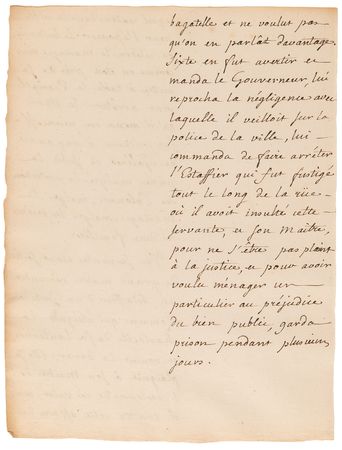 bagatelle et ne voulut pas
qu'on en parlât davantage
Sixte en fut avertir et
manda le Gouverneur, lui
reprocha la négligence avec
laquelle il veilloit sur la
police de la ville, lui
commanda de faire arrêter
l'Estaffier qui fut fustigé
tout le long de la rüe
où il avoit insulté cette
servante, et son Maitre,
pour ne s'être pas plaint
à la justice, et pour avoir
voulu ménager un
particulier au préjudice
du bien public, garda
prison pendant plusieurs
jours.